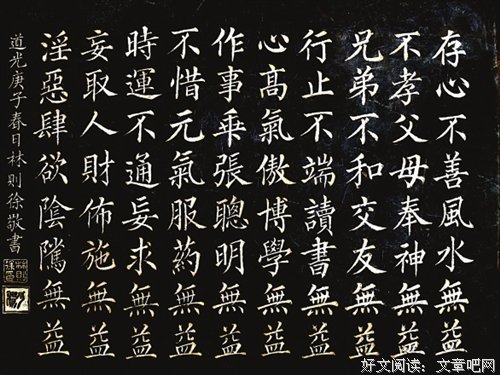 存心不善風水無益
不孝父母奉神無益
兄弟不和交友無益
行止不端讀書無益
心髙氣傲博學無益
作事乖張聰明無益
不惜元氣服藥無益
時運不通妄求無益
妄取人財佈施無益
淫惡肆欲陰騭無益
道光庚子春日林則徐敬書
好文阅读：文章吧网